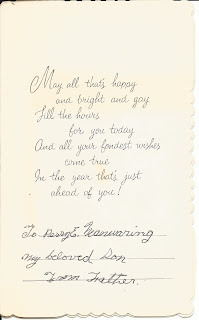 May all that's happy
and bright and gay
Fill the hours
for you today
And all your fondest wishes
come true
In the year that's just
ahead of you!
To Perry E. Manwaring
My beloved Son
From Father.